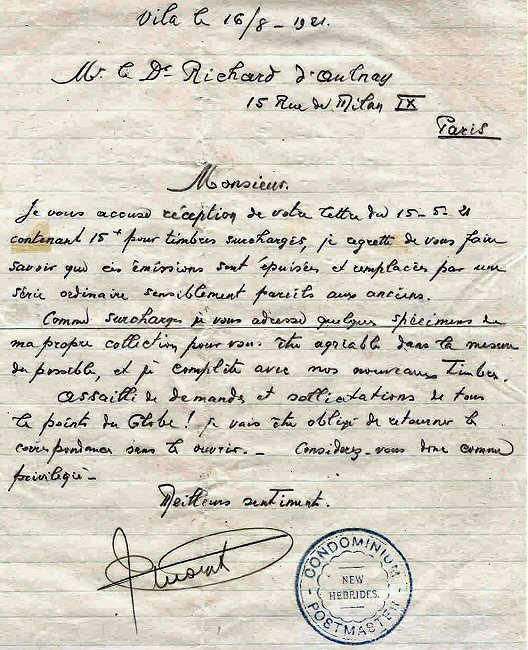 Vila le 16/8 - 1921.
Mr le Dr Richard d'Aulnay
15 Rue de Milan IX
Paris
Monsieur.
Je vous accuse réception de votre lettre du 15-5-21
contenant 15 f pour timbres surchargés, je regrette de vous faire
savoir que ces émissions sont épuisées et remplacées par une
série ordinaire sensiblement pareils aux anciens.
Comme surcharges je vous adresse quelques spécimens de
ma propre collection pour vous être agréable dans la mesure
du possible, et je complète avec nos nouveaux timbres.
Assailli de demandes et sollicitations de tous
les points du Globe! je vais être obligé de retourner la
correspondance sans l'ouvrir. - Considerez-vous donc comme
privilégié -
Meilleurs sentiments.
CONDOMINIUM
NEW
HEBRIDES.
POSTMASTER